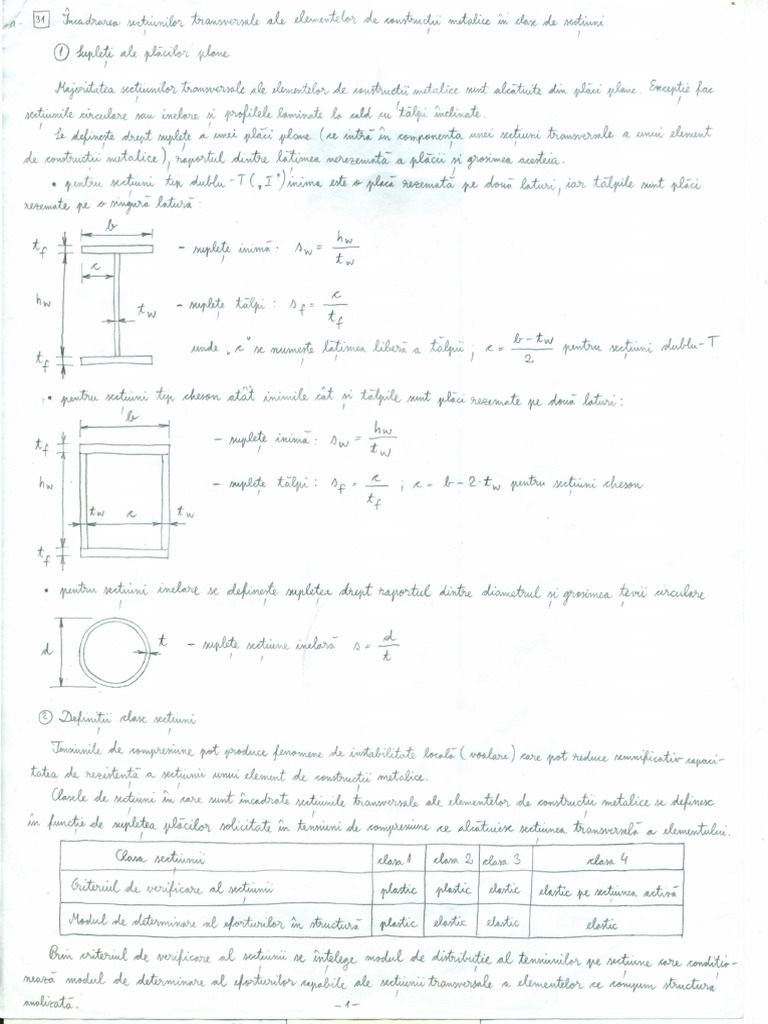 31 Încadrarea secțiunilor transversale ale elementelor de construcții metalice în clase de secțiuni
1 Suplețí ale plăcilor plane
Majoritatea secțiunilor transversale ale elementelor de construcții metalice sunt alcătuite din plăci plane. Excepție fac
secțiunile circulare sau inelare și profilele laminate la cald cu tălpi înclinate.
Se definește drept suplețe a unei plăci plane (ce intră în componența unei secțiuni transversale a unui element
de construcții metalice), raportul dintre lățimea nerezemată a plăcii și grosimea acesteia.
• pentru secțiuni tip dublu-T („I") inima este o placă rezemată pe două laturi, iar tălpile sunt plăci
rezemate pe o singură latură:
b
t_f
c
h_w
t_w
t_f
- suplețe inimă: s_w = h_w / t_w
- suplețe tălpi: s_f = c / t_f
unde „c" se numește lățimea liberă a tălpii; c = (b - t_w) / 2 pentru secțiuni dublu-T
• pentru secțiuni tip cheson atât inimile cât și tălpile sunt plăci rezemate pe două laturi:
b
t_f
h_w
t_w c t_w
t_f
- suplețe inimă: s_w = h_w / t_w
- suplețe tălpi: s_f = c / t_f ; c = b - 2·t_w pentru secțiuni cheson
• pentru secțiuni inelare se definește suplețea drept raportul dintre diametrul și grosimea țevii circulare
d
t
- suplețe secțiune inelară s = d / t
2 Definiții clase secțiuni
Tensiunile de compresiune pot produce fenomene de instabilitate locală (voalare) care pot reduce semnificativ capaci-
tatea de rezistență a secțiunii unui element de construcții metalice.
Clasele de secțiuni în care sunt încadrate secțiunile transversale ale elementelor de construcții metalice se definesc
în funcție de suplețea plăcilor solicitate în tensiuni de compresiune ce alcătuiesc secțiunea transversală a elementului.
Clasa secțiunii clasa 1 clasa 2 clasa 3 clasa 4
Criteriul de verificare al secțiunii plastic plastic elastic elastic pe secțiunea activă
Modul de determinare al eforturilor în structură plastic elastic elastic elastic
Prin criteriul de verificare al secțiunii se înțelege modul de distribuție al tensiunilor pe secțiune care condițio-
nează modul de determinare al eforturilor capabile ale secțiunii transversale a elementelor ce compun structura
analizată.
-1-